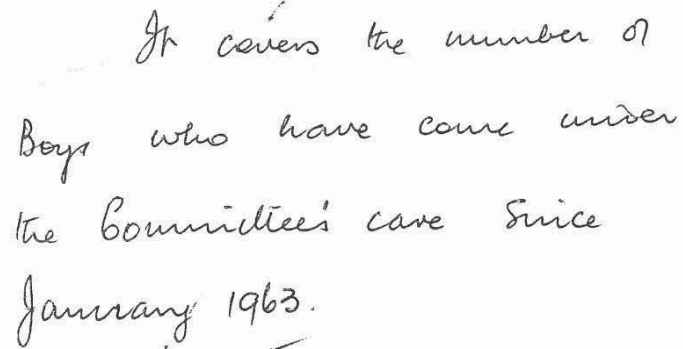 It covers the number of
Boys who have come under
the Committee's care Since
January 1963.